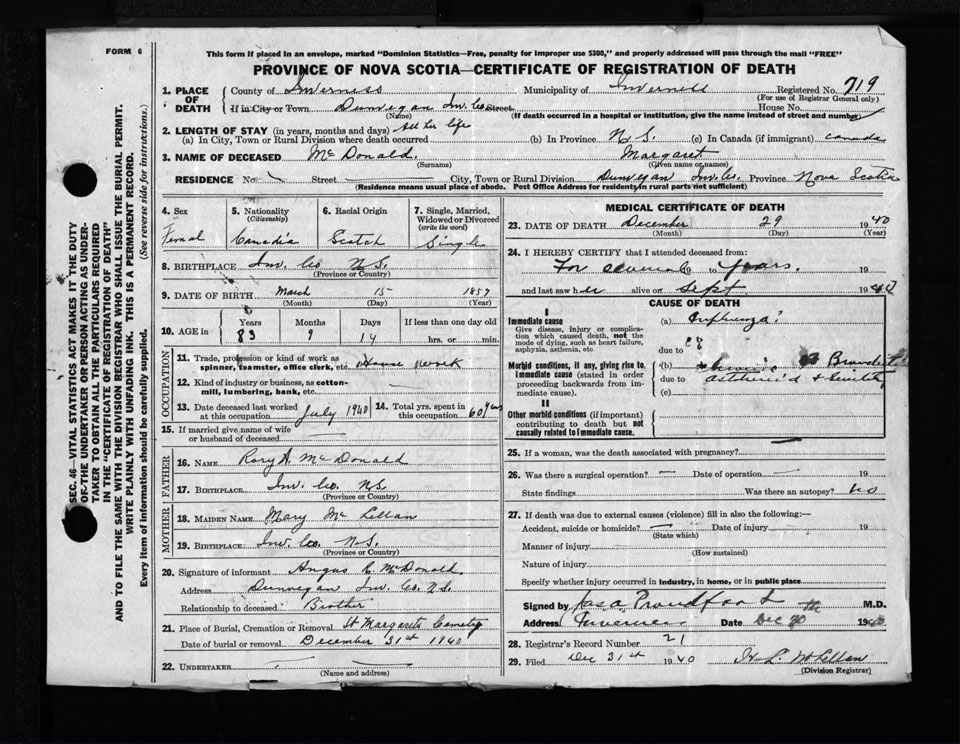 FORM 6
This form if placed in an envelope, marked "Dominion Statistics—Free, penalty for improper use $300," and properly addressed will pass through the mail "FREE"
PROVINCE OF NOVA SCOTIA—CERTIFICATE OF REGISTRATION OF DEATH
SEC. 46—VITAL STATISTICS ACT MAKES IT THE DUTY
OF THE UNDERTAKER OR PERSON ACTING AS UNDER-
TAKER TO OBTAIN ALL THE PARTICULARS REQUIRED
IN THE "CERTIFICATE OF REGISTRATION OF DEATH"
AND TO FILE THE SAME WITH THE DIVISION REGISTRAR WHO SHALL ISSUE THE BURIAL PERMIT.
WRITE PLAINLY WITH UNFADING INK. THIS IS A PERMANENT RECORD.
Every item of information should be carefully supplied. (See reverse side for instructions.)
1. PLACE OF DEATH County of Inverness Municipality of Inverness Registered No. 719
(For use of Registrar General only)
If in City or Town Dunvegan Inv. Co Street House No.
(Name) (If death occurred in a hospital or institution, give the name instead of street and number)
2. LENGTH OF STAY (in years, months and days) All her life
(a) In City, Town or Rural Division where death occurred (b) In Province N S. (c) In Canada (if immigrant) Canada
3. NAME OF DECEASED McDonald. Margaret
(Surname) (Given name or names)
RESIDENCE No. Street City, Town or Rural Division Dunvegan Inv. Co. Province Nova Scotia
(Residence means usual place of abode. Post Office Address for residents in rural parts not sufficient)
4. Sex 5. Nationality 6. Racial Origin 7. Single, Married,
(Citizenship) Widowed or Divorced
(write the word)
Femal Canadia Scotch Single
8. BIRTHPLACE Inv. Co N.S.
(Province or Country)
9. DATE OF BIRTH March 15 1857
(Month) (Day) (Year)
10. AGE in Years Months Days If less than one day old
83 9 14 hrs. or min.
OCCUPATION
11. Trade, profession or kind of work as
spinner, teamster, office clerk, etc. House work
12. Kind of industry or business, as cotton-
mill, lumbering, bank, etc.
13. Date deceased last worked 14. Total yrs. spent in
at this occupation July 1940 this occupation 60 years
15. If married give name of wife
or husband of deceased
FATHER
16. NAME Rory A. McDonald
17. BIRTHPLACE Inv. Co. N.S.
(Province or Country)
MOTHER
18. MAIDEN NAME Mary McLellan
19. BIRTHPLACE Inv. Co. N.S.
(Province or Country)
20. Signature of informant Angus R. McDonald.
Address Dunvegan Inv. Co. N.S.
Relationship to deceased Brother
21. Place of Burial, Cremation or Removal St Margarets Cemetry
Date of burial or removal December 31st 1940
22. UNDERTAKER
(Name and address)
MEDICAL CERTIFICATE OF DEATH
23. DATE OF DEATH December 29 1940
(Month) (Day) (Year)
24. I HEREBY CERTIFY that I attended deceased from:
For several 19 to years. 19
and last saw her alive on Sept 1940
CAUSE OF DEATH
I
Immediate cause (a) Influenza?
Give disease, injury or complica-
tion which caused death, not the
mode of dying, such as heart failure,
asphyxia, asthenia, etc due to
Morbid conditions, if any, giving rise to
immediate cause (stated in order
proceeding backwards from im-
mediate cause). (b) Chronic
due to
(c)
II
Other morbid conditions (if important)
contributing to death but not
causally related to immediate cause.
25. If a woman, was the death associated with pregnancy?
26. Was there a surgical operation? — Date of operation
State findings Was there an autopsy? No
27. If death was due to external causes (violence) fill in also the following:—
Accident, suicide or homicide? — Date of injury 19
(State which)
Manner of injury
(How sustained)
Nature of injury
Specify whether injury occurred in industry, in home, or in public place
Signed by Jas A. Proudfoot M.D.
Address Inverness Date Dec 30th 1940
28. Registrar's Record Number 21
29. Filed Dec 31st 1940 H L McLellan
(Division Registrar)